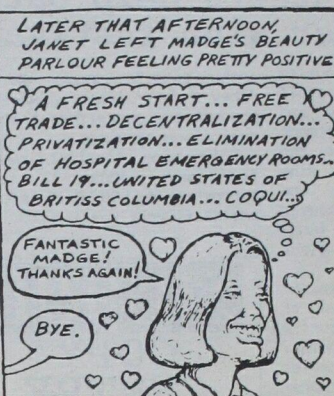 LATER THAT AFTERNOON,
JANET LEFT MADGE'S BEAUTY
PARLOUR FEELING PRETTY POSITIVE
A FRESH START... FREE
TRADE... DECENTRALIZATION...
PRIVATIZATION... ELIMINATION
OF HOSPITAL EMERGENCY ROOMS...
BILL 19... UNITED STATES OF
BRITISS COLUMBIA... COQUI...
FANTASTIC
MADGE!
THANKS AGAIN!
BYE.